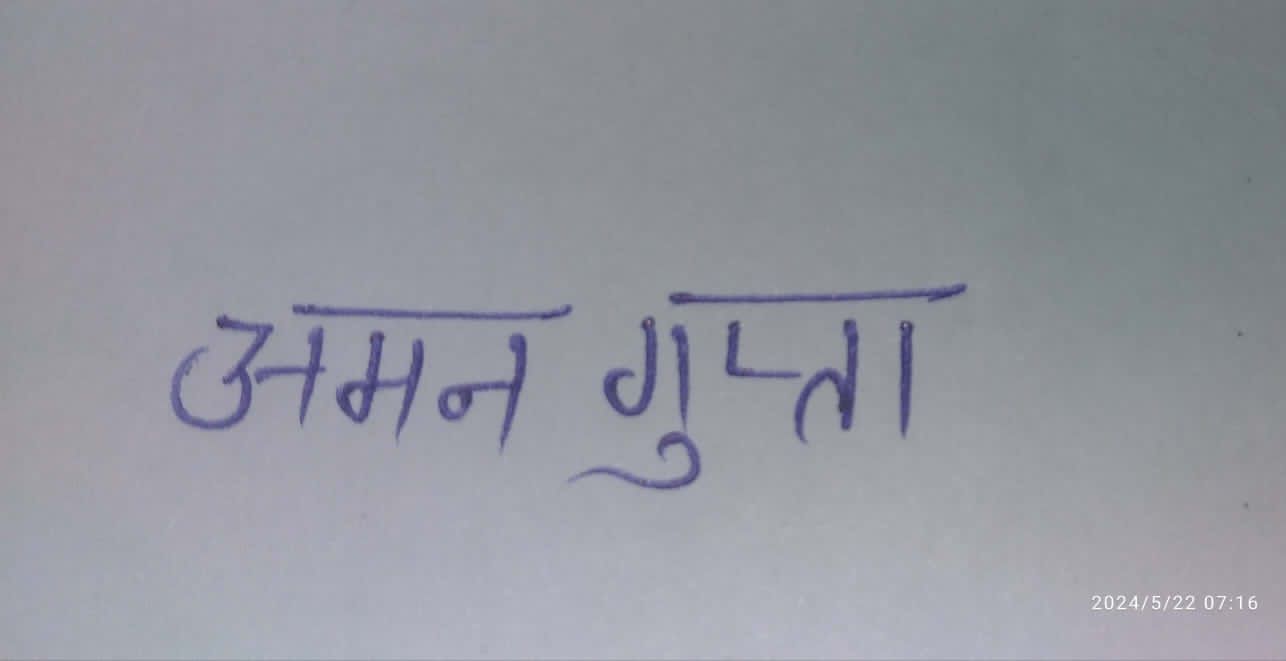 अमन गुप्ता
2024/5/22 07:16